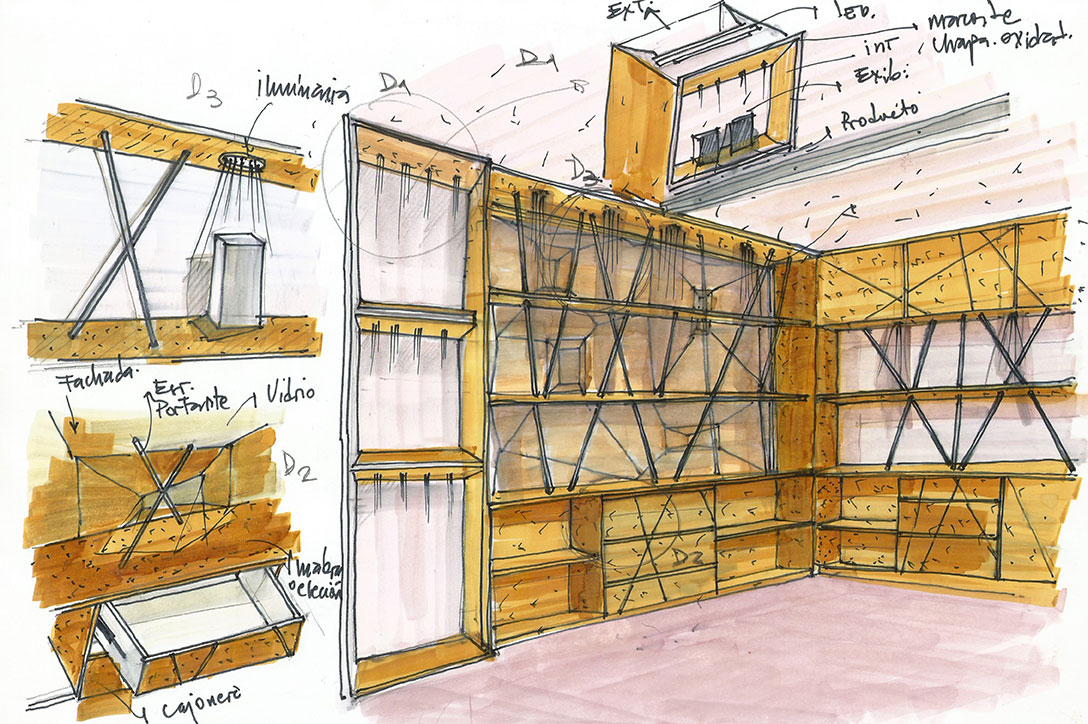 Ext.
LED.
marco de
chapa oxidat.
int
Exib:
Producto
D1
D3
iluminarias
D1
D2
Fachada
Est.
Portante
Vidrio
D2
D2
cajonero